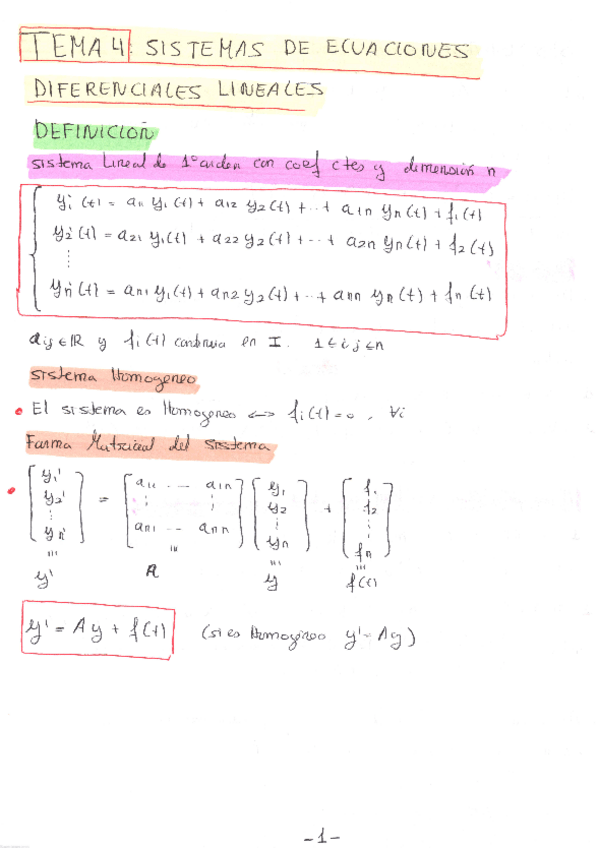 TEMA 4: SISTEMAS DE ECUACIONES
DIFERENCIALES LINEALES
DEFINICION
sistema Lineal de 1º orden con coef ctes y dimensión n
y1'(t) = a11 y1(t) + a12 y2(t) + ... + a1n yn(t) + f1(t)
y2'(t) = a21 y1(t) + a22 y2(t) + ... + a2n yn(t) + f2(t)
⋮
yn'(t) = an1 y1(t) + an2 y2(t) + ... + ann yn(t) + fn(t)
aij ∈ IR y fi(t) continua en I. 1 ≤ i, j ≤ n
sistema Homogeneo
• El sistema es Homogeneo <-> fi(t) = 0, ∀i
Forma Matricial del sistema
• [y1' y2' ⋮ yn'] = [a11 ... a1n ⋮ ⋮ an1 ... ann] [y1 y2 ⋮ yn] + [f1 f2 ⋮ fn]
y' A y f(t)
y' = Ay + f(t) (si es Homogéneo y' = Ay)
-1-